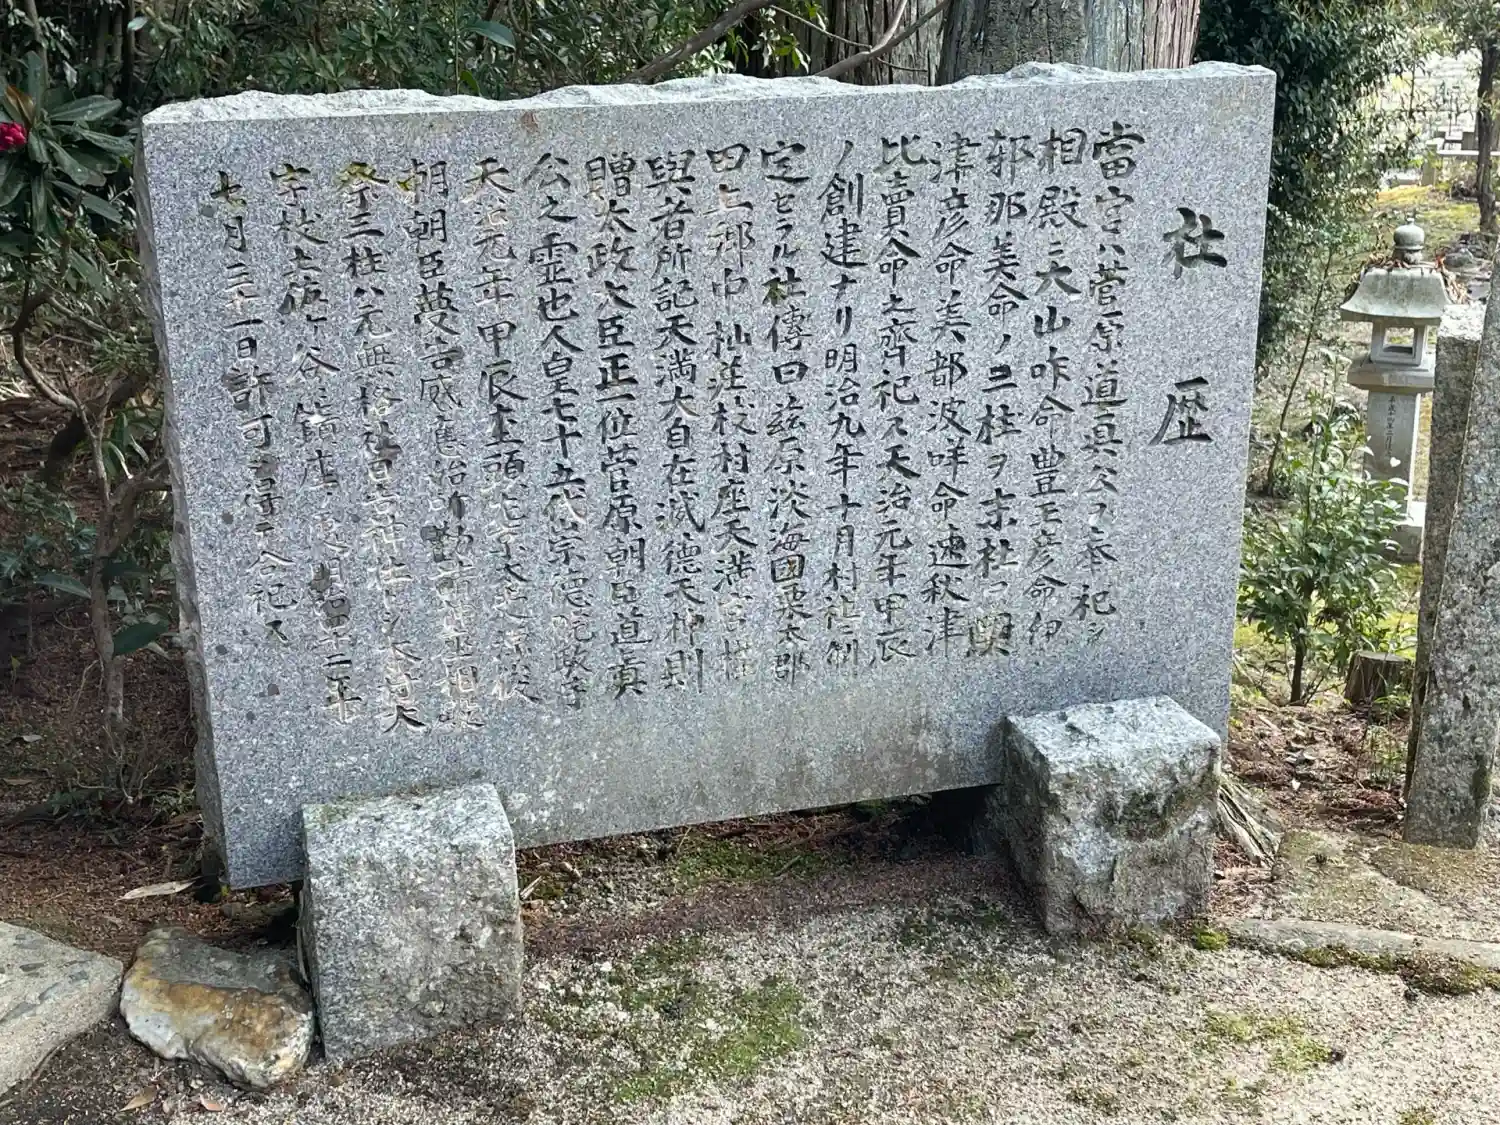 社歴
當宮ハ菅原道真公ヲ奉祀シ
相殿ニ大山咋命豊玉彦命伊
邪那美命ノ三柱ヲ末社ニ
津彦命美都波咩命速秋津
比賣命之齋祀ス天治元年甲辰
ノ創建ナリ明治九年十月村社ニ制
定セラル社傳曰茲原淡海國栗太郡
田上郷中杣荘枝村座天満宮
與者所記天満大自在威德天神則
贈太政大臣正一位菅原朝臣道真
公之霊也人皇七十五代崇德院敬
天治元年甲辰
朝朝臣夢告感應治所勸請
祭三柱ハ元無格社日吉神社ニシ本村大
字枝大 ヶ谷鎮座 明治四十二年
七月二十一日許可ヲ得テ合祀ス